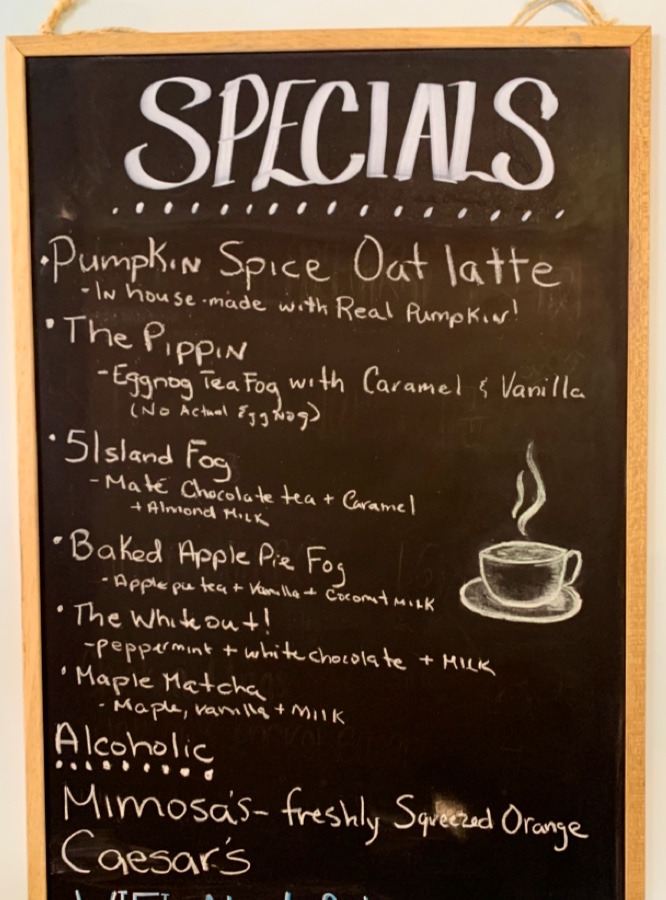 SPECIALS
• Pumpkin Spice Oat latte
- In house-made with Real Pumpkin!
• The Pippin
- Eggnog Tea Fog with Caramel & Vanilla
(No Actual EggNog)
• 5Island Fog
- Maté Chocolate tea + Caramel
+ Almond Milk
• Baked Apple Pie Fog
- Apple pie tea + Vanilla + Coconut Milk
• The Whiteout!
- peppermint + white chocolate + MILK
• Maple Matcha
- Maple, vanilla + Milk
Alcoholic
Mimosa's - freshly Squeezed Orange
Caesar's